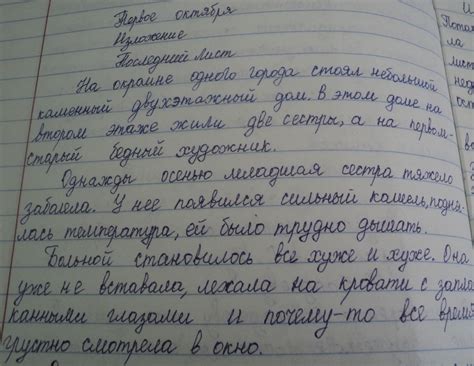 Первое октября
Изложение
Последний лист
На окраине одного города стоял небольшой
каменный двухэтажный дом. В этом доме на
втором этаже жили две сестры, а на первом-
старый бедный художник.
Однажды осенью младшая сестра тяжело
заболела. У нее появился сильный кашель, подня-
лась температура, ей было трудно дышать.
Больной становилось всё хуже и хуже. Она
уже не вставала, лежала на кровати с запла
канными глазами и почему-то все время
грустно смотрела в окно.
И
Пота
ла
лист
нед
ост